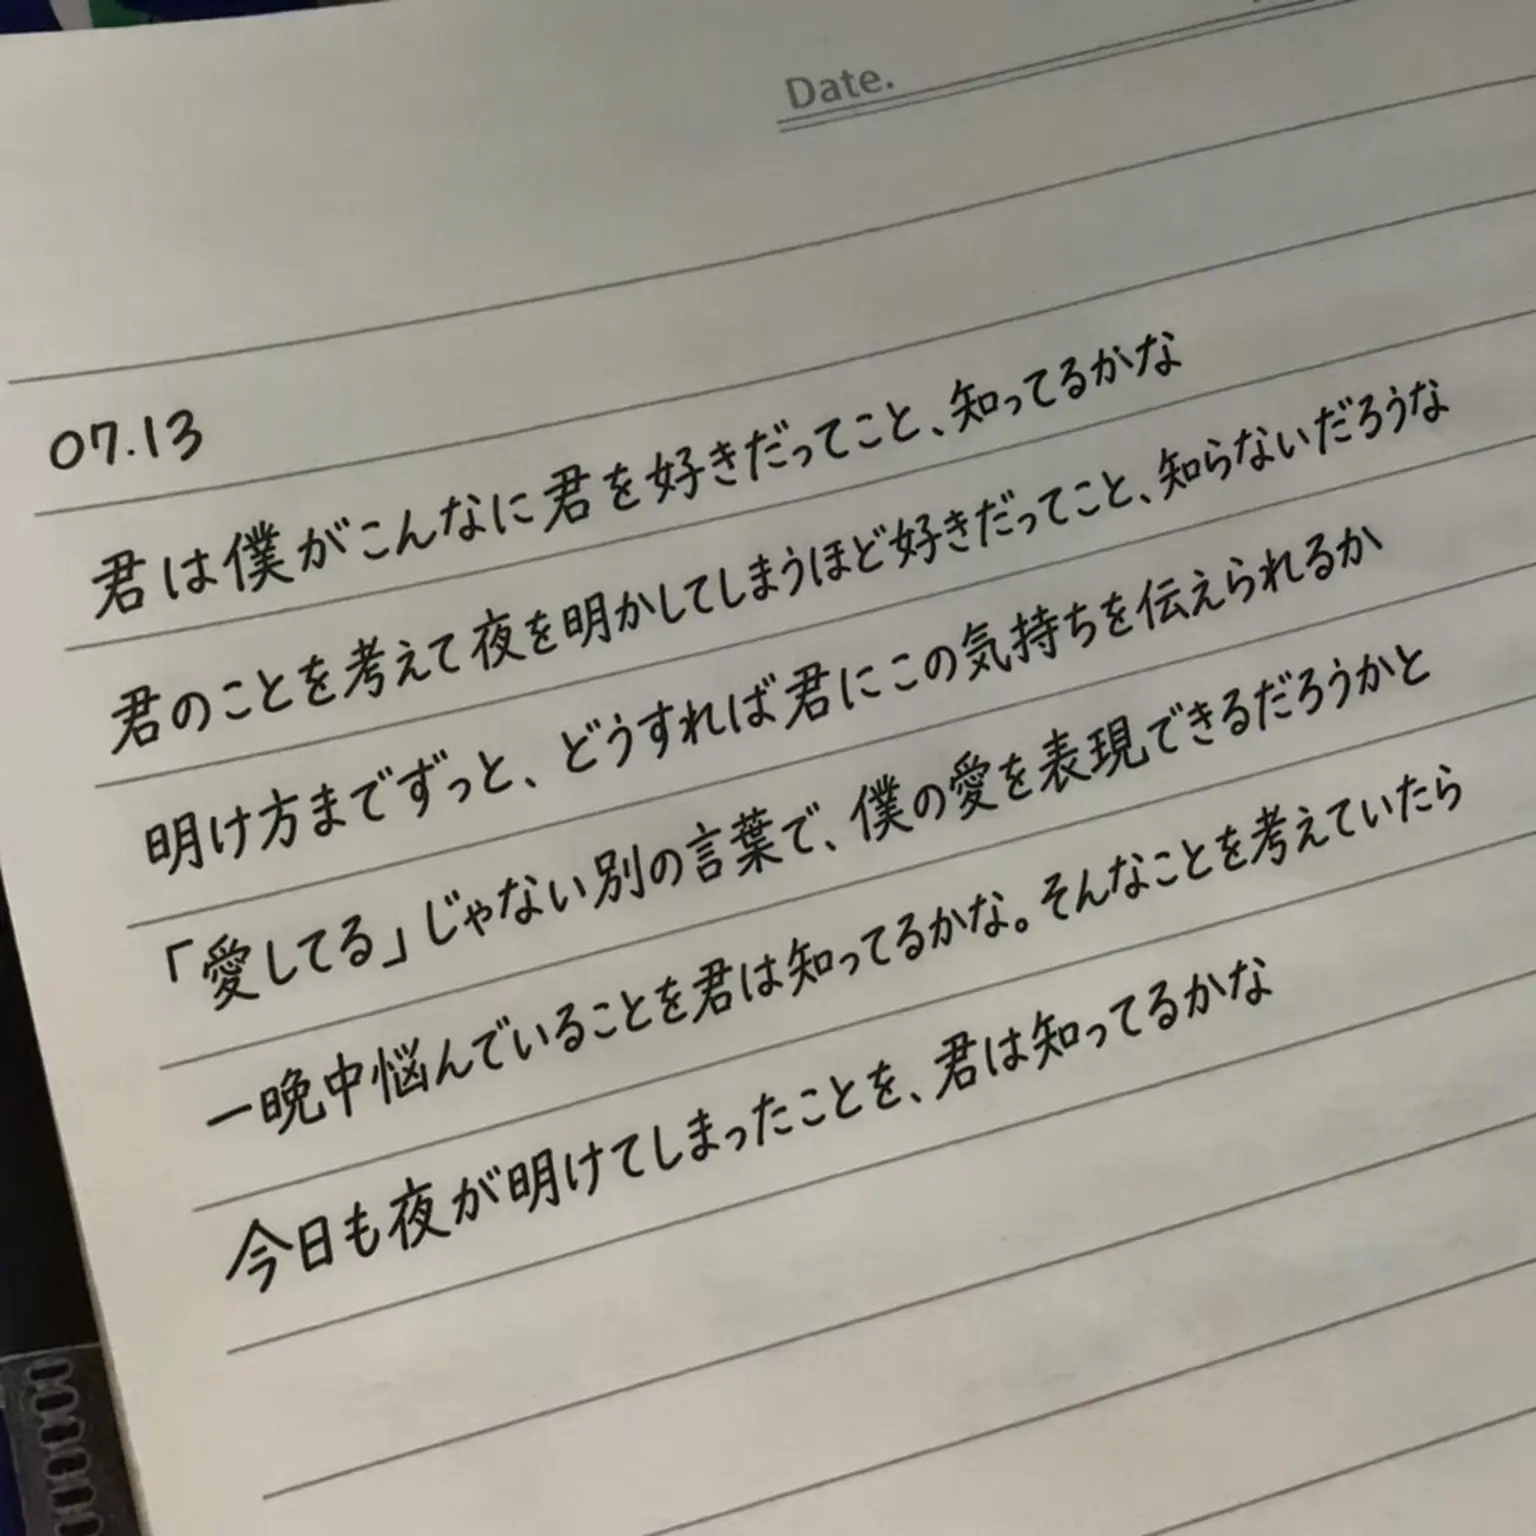 Date.
07.13
君は僕がこんなに君を好きだってこと、知ってるかな
君のことを考えて夜を明かしてしまうほど好きだってこと、知らないだろうな
明け方までずっと、どうすれば君にこの気持ちを伝えられるか
「愛してる」じゃない別の言葉で、僕の愛を表現できるだろうかと
一晩中悩んでいることを君は知ってるかな。そんなことを考えていたら
今日も夜が明けてしまったことを、君は知ってるかな